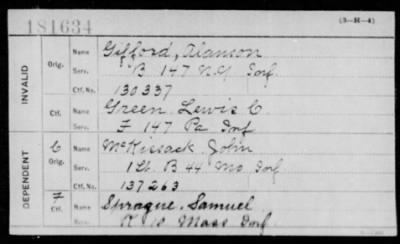 181634
(3-H-4)
INVALID
Orig.
Name Gifford, Alanson
Serv. B 147 N.Y Inf.
Ctf. No. 130337
Ctf.
Name Green, Lewis C.
Serv. F 147 Pa Inf
DEPENDENT
C
Orig.
Name McKissack John
Serv. 1 Lt. B 44 Mo Inf
Ctf. No. 137263
Ctf.
Name Sprague, Samuel
Serv. K 10 Mass Inf